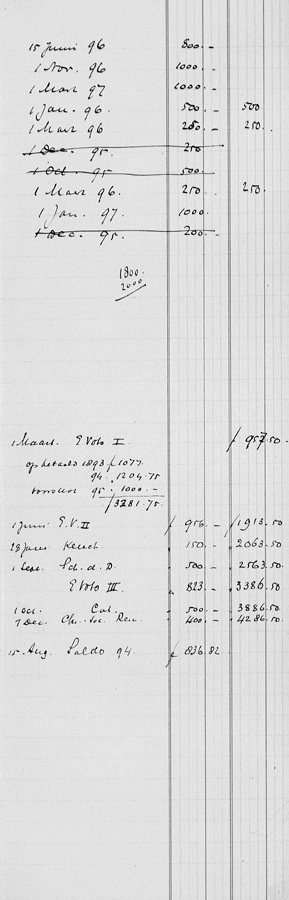 15 Juni 96 800.-
1 Nov. 96 1000.-
1 Maart 97 1000.-
1 Jan. 96. 500.- 500
1 Maart 96 250.- 250.
1 Dec. 95. 250
1 Oct. 95 500.-
1 Maart 96. 250.- 250.
1 Jan. 97. 1000.
1 Dec. 95. 200.-
1800.
2000
1 Maart. E Voto I f 957.50.
op betaald 1893 f 1077.
94. 1204.75
voorschot 95. 1000.-
f 3281.75.
1 Juni E.V. II f 956.- f 1913.50
28 Juni 150.- 2063.50
1 Sc. d. D. 500.- 2563.50
E Voto III. 823.- 3386.50
1 Oct. Cat. 500.- 3886.50
7 Dec. Ch. Soc. 400.- 4286.50.
15 Aug. Saldo 94. f 836.82